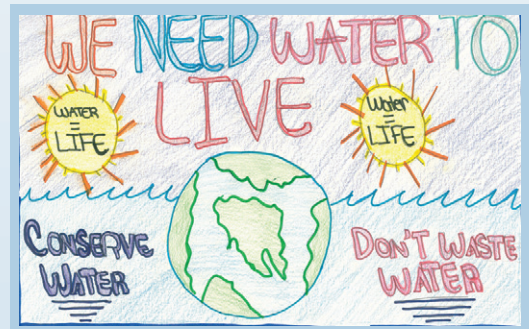 WE NEED WATER TO
LIVE
WATER
=
LIFE
Water
=
LIFE
CONSERVE
WATER
DON'T WASTE
WATER